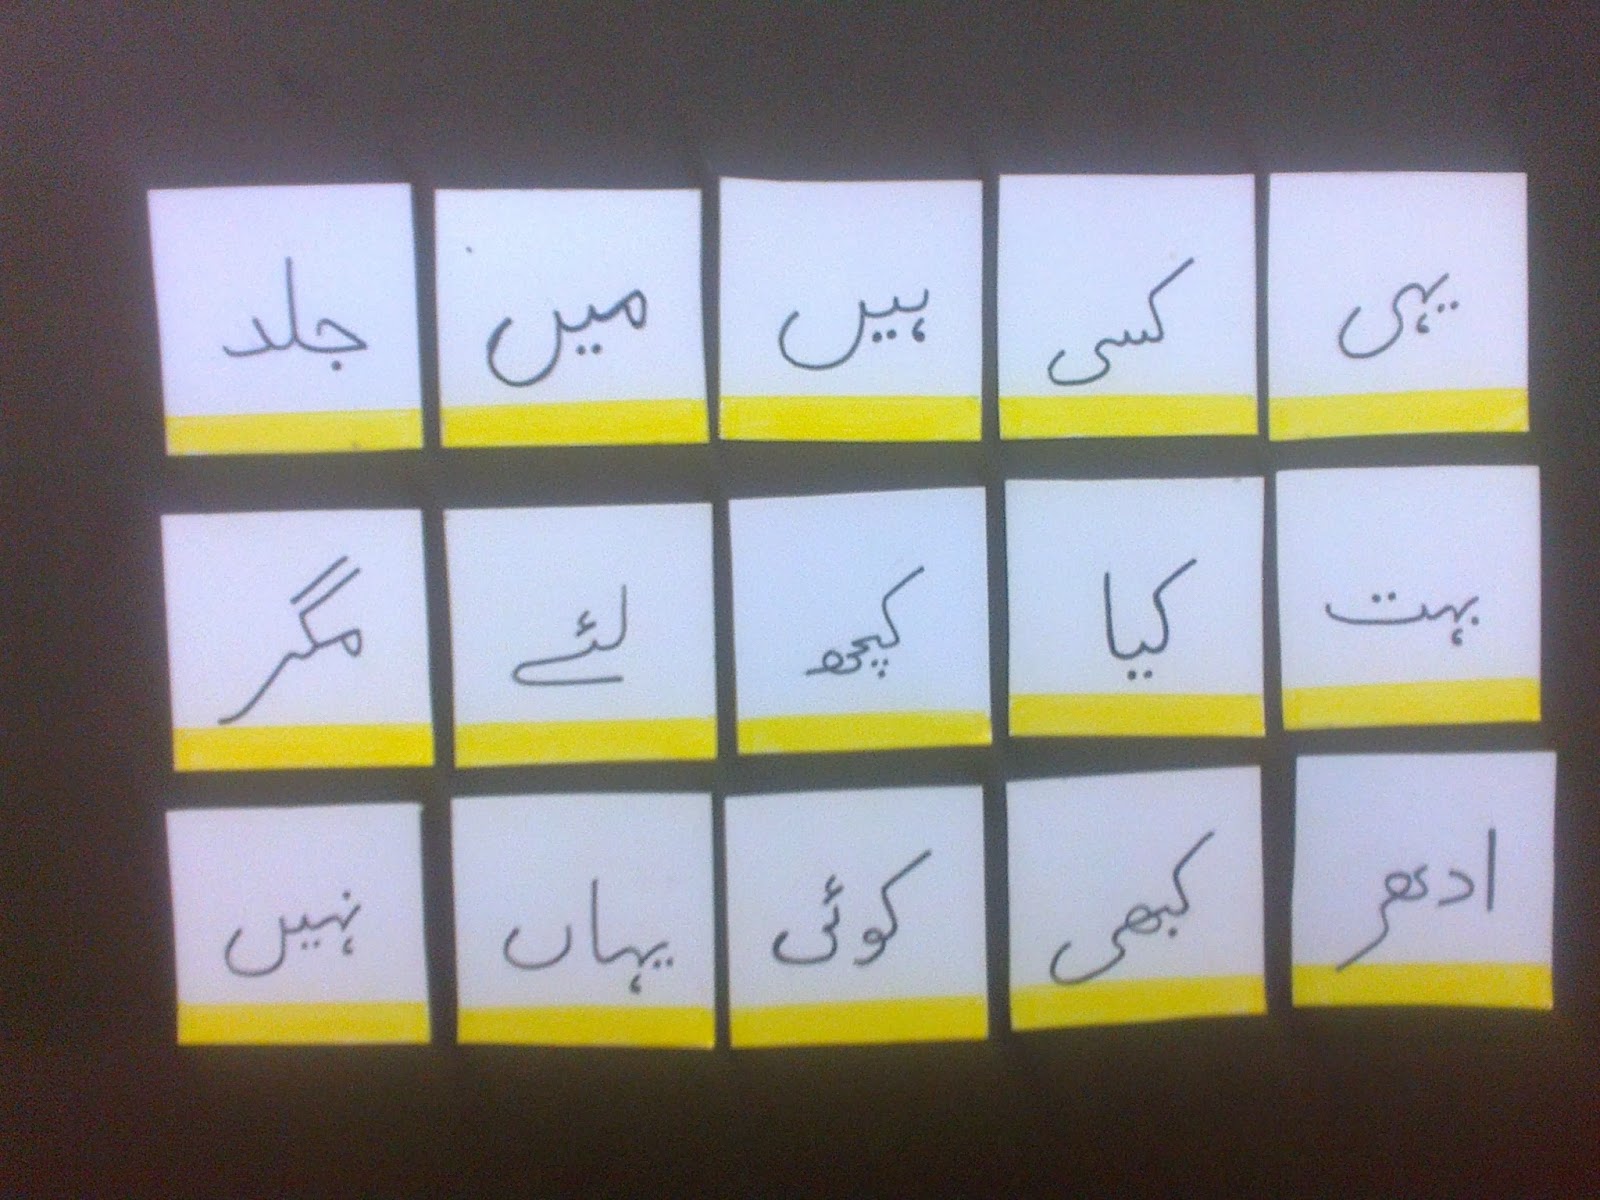 یہی کسی ہیں میں جلد
بہت کیا کچھ لئے مگر
ادھر کبھی کوئی یہاں نہیں